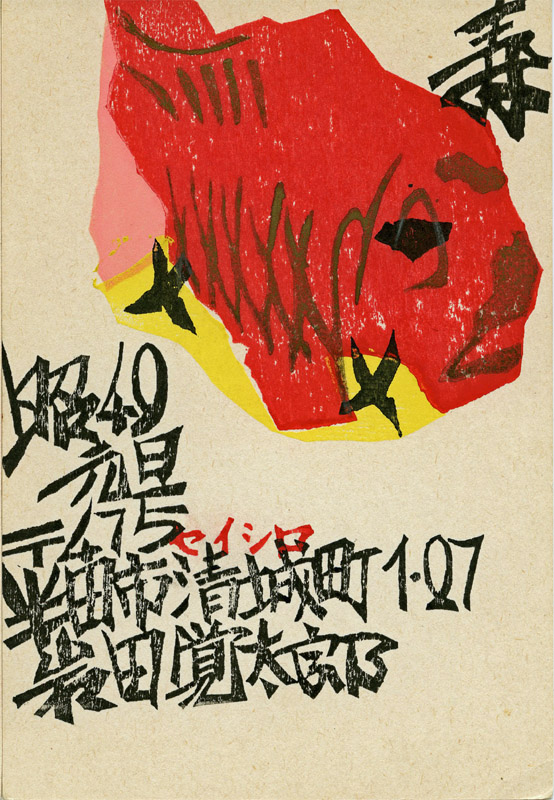 寿
昭49
元旦
〒475
セイシロ
半田市清城町1・27
岩田覚太郎